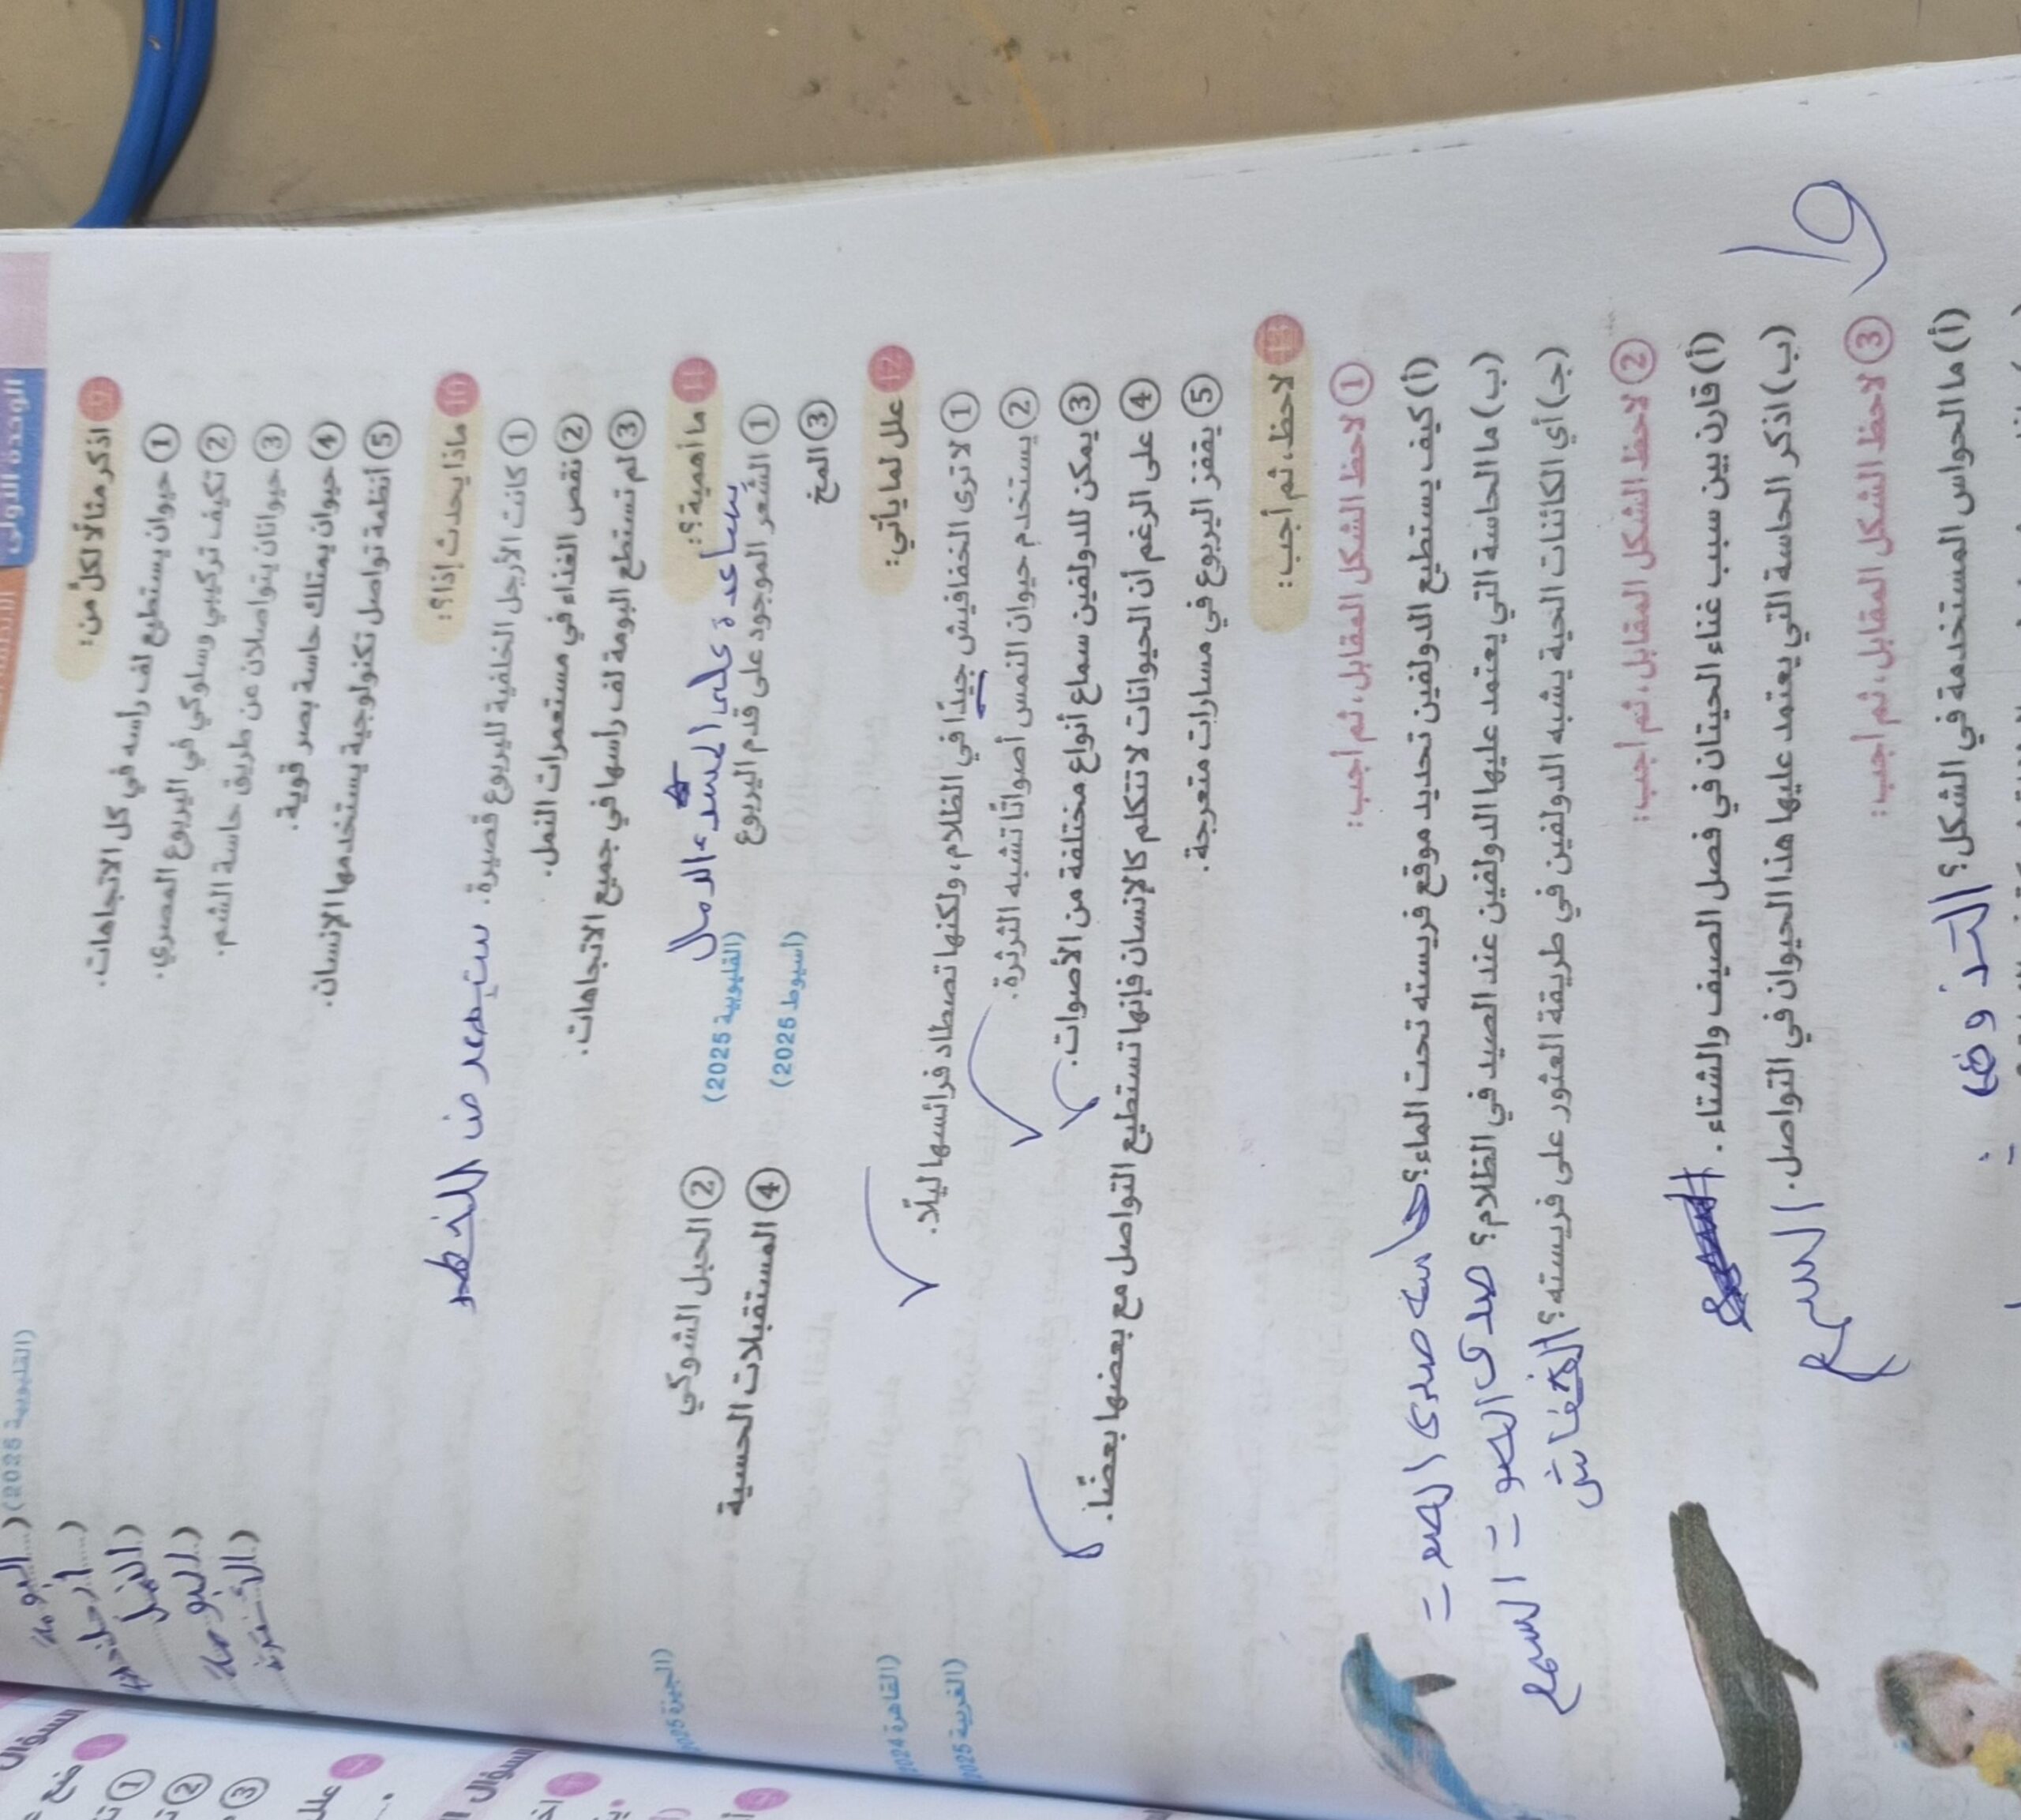 الوحدة الأولى
(القليوبية 2025)
9 اذكر مثالًا لكل من:
1 حيوان يستطيع لف رأسه في كل الاتجاهات. (البومة)
2 تكيف تركيبي وسلوكي في اليربوع المصري.
3 حيوانان يتواصلان عن طريق حاسة الشم. (النمل)
4 حيوان يمتلك حاسة بصر قوية. (البومة)
5 أنظمة تواصل تكنولوجية يستخدمها الإنسان.
10 ماذا يحدث إذا؟:
1 كانت الأرجل الخلفية لليربوع قصيرة. سيتعرض للخطر
2 نقص الغذاء في مستعمرات النمل.
3 لم تستطع البومة لف رأسها في جميع الاتجاهات.
(الجيزة 2025)
11 ما أهمية؟:
يساعدة على المشي الرمال
1 الشعر الموجود على قدم اليربوع (القليوبية 2025)
2 الحبل الشوكي
3 المخ (أسيوط 2025)
4 المستقبلات الحسية
12 علل لما يأتي:
1 لا ترى الخفافيش جيدًا في الظلام، ولكنها تصطاد فرائسها ليلًا.
(القاهرة 2024)
2 يستخدم حيوان النمس أصواتًا تشبه الثرثرة.
(الغربية 2025)
3 يمكن للدولفين سماع أنواع مختلفة من الأصوات.
4 على الرغم أن الحيوانات لا تتكلم كالإنسان فإنها تستطيع التواصل مع بعضها بعضًا.
5 يقفز اليربوع في مسارات متعرجة.
13 لاحظ، ثم أجب:
1 لاحظ الشكل المقابل، ثم أجب:
(أ) كيف يستطيع الدولفين تحديد موقع فريسته تحت الماء؟ حاسة صدى الصوت
(ب) ما الحاسة التي يعتمد عليها الدولفين عند الصيد في الظلام؟ صدى الصوت السمع
(جـ) أي الكائنات الحية يشبه الدولفين في طريقة العثور على فريسته؟ الخفاش
2 لاحظ الشكل المقابل، ثم أجب:
(أ) قارن بين سبب غناء الحيتان في فصل الصيف والشتاء.
(ب) اذكر الحاسة التي يعتمد عليها هذا الحيوان في التواصل. السمع
3 لاحظ الشكل المقابل، ثم أجب:
(أ) ما الحواس المستخدمة في الشكل؟ التذوق